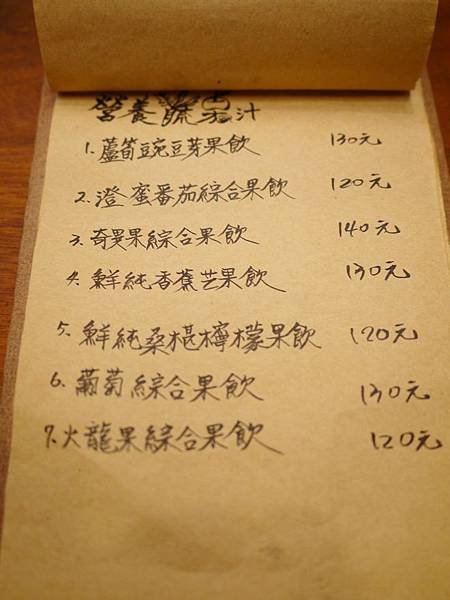 營養蔬果汁
1. 蘆筍豌豆芽果飲 130元
2. 澄蜜番茄綜合果飲 120元
3. 奇異果綜合果飲 140元
4. 鮮純香蕉芒果飲 130元
5. 鮮純桑椹檸檬果飲 120元
6. 葡萄綜合果飲 130元
7. 火龍果綜合果飲 120元